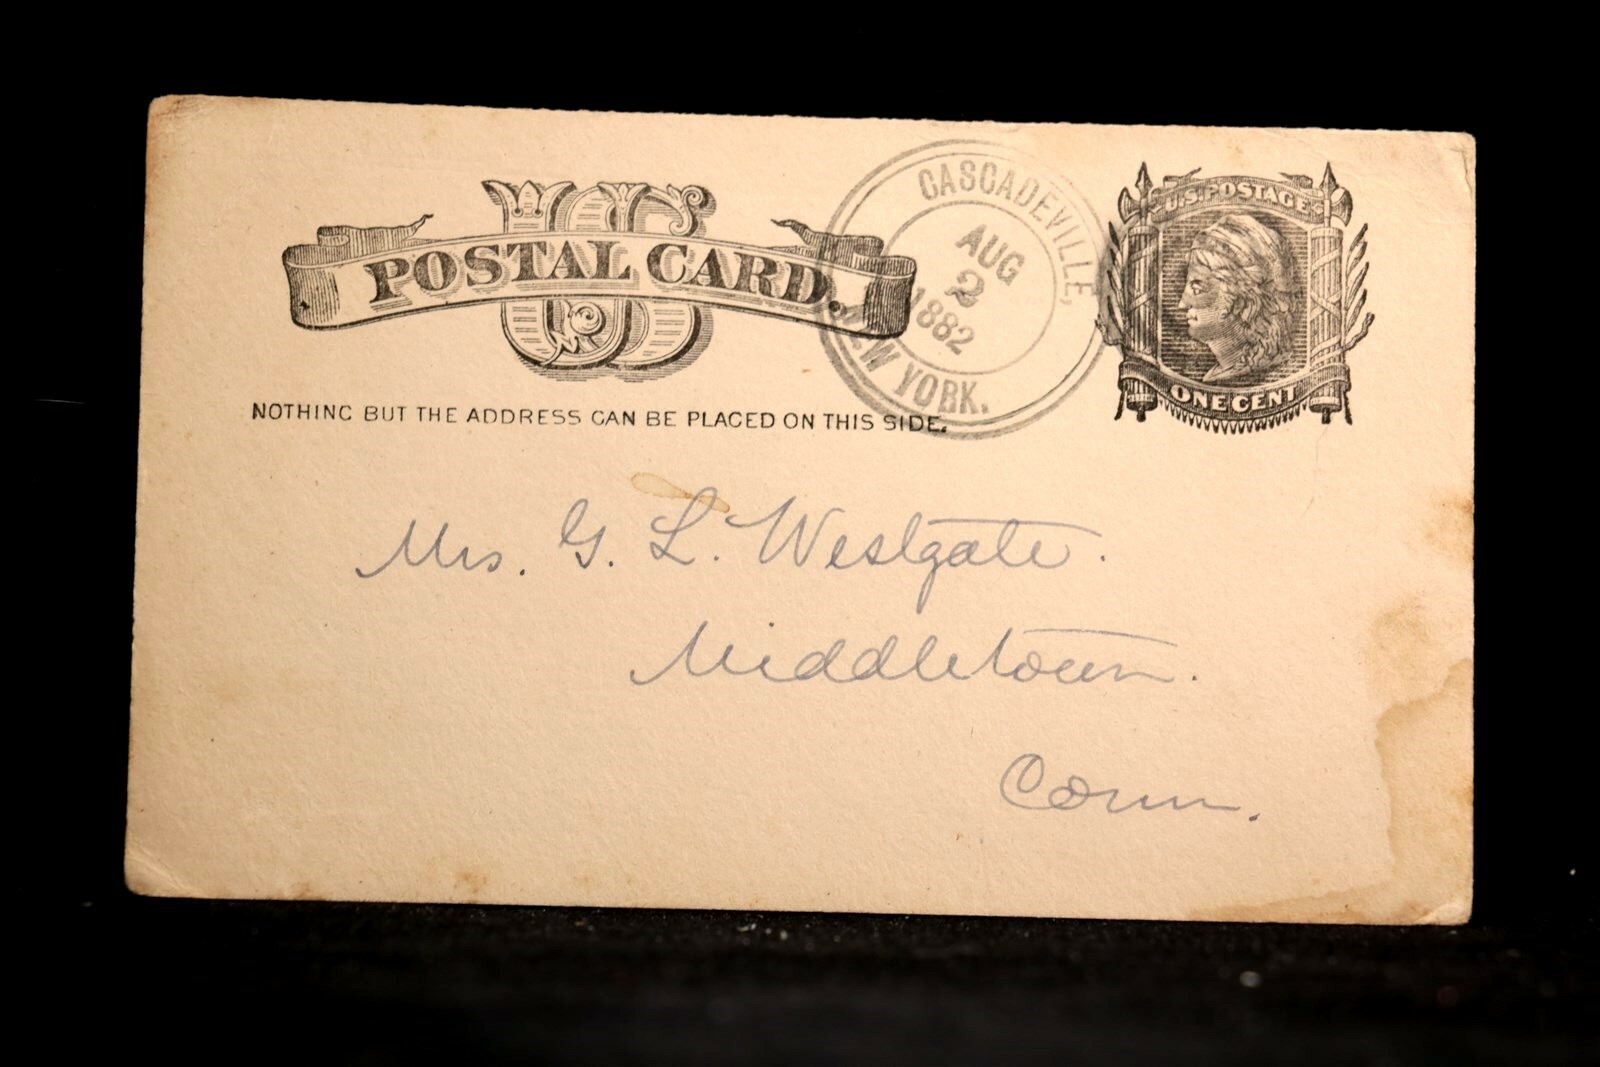 US
POSTAL CARD.
NOTHING BUT THE ADDRESS CAN BE PLACED ON THIS SIDE.
CASCADEVILLE,
AUG
2
1882
NEW YORK.
U.S. POSTAGE
ONE CENT
Mrs. G. L. Westgate.
Middletown.
Conn.